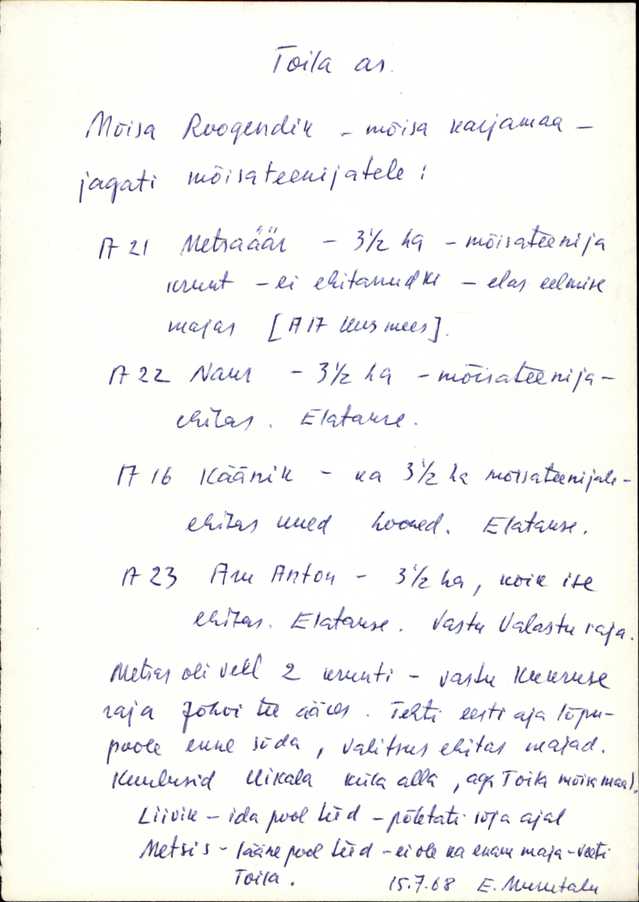 Toila as.
Mõisa Roogendik – mõisa karjamaa –
jagati mõisateenijatele:
A 21 Metsaäär – 3 1/2 ha – mõisateenija
krunt – ei ehitanudki – elas eelmise
majas [A 17 Uusmees].
A 22 Naur – 3 1/2 ha – mõisateenija –
ehitas. Elatakse.
A 16 Käänik – ka 3 1/2 ha mõisateenijale –
ehitas uued hooned. Elatakse.
A 23 Aru Anton – 3 1/2 ha, kõik ise
ehitas. Elatakse. Vastu Valastu raja.
Metsas oli veel 2 krunti – vastu Kukruse
raja Jõhvi tee ääres. Tehti eesti aja lõpu-
poole enne sõda, valitsus ehitas majad.
Kuulusid Uikala küla alla, aga Toila mõisa maa).
Liivik – ida pool teed – põletati sõja ajal
Metsis – lääne pool teed – ei ole ka enam maja – veeti
Toila.
15.7.68 E. Murutalu